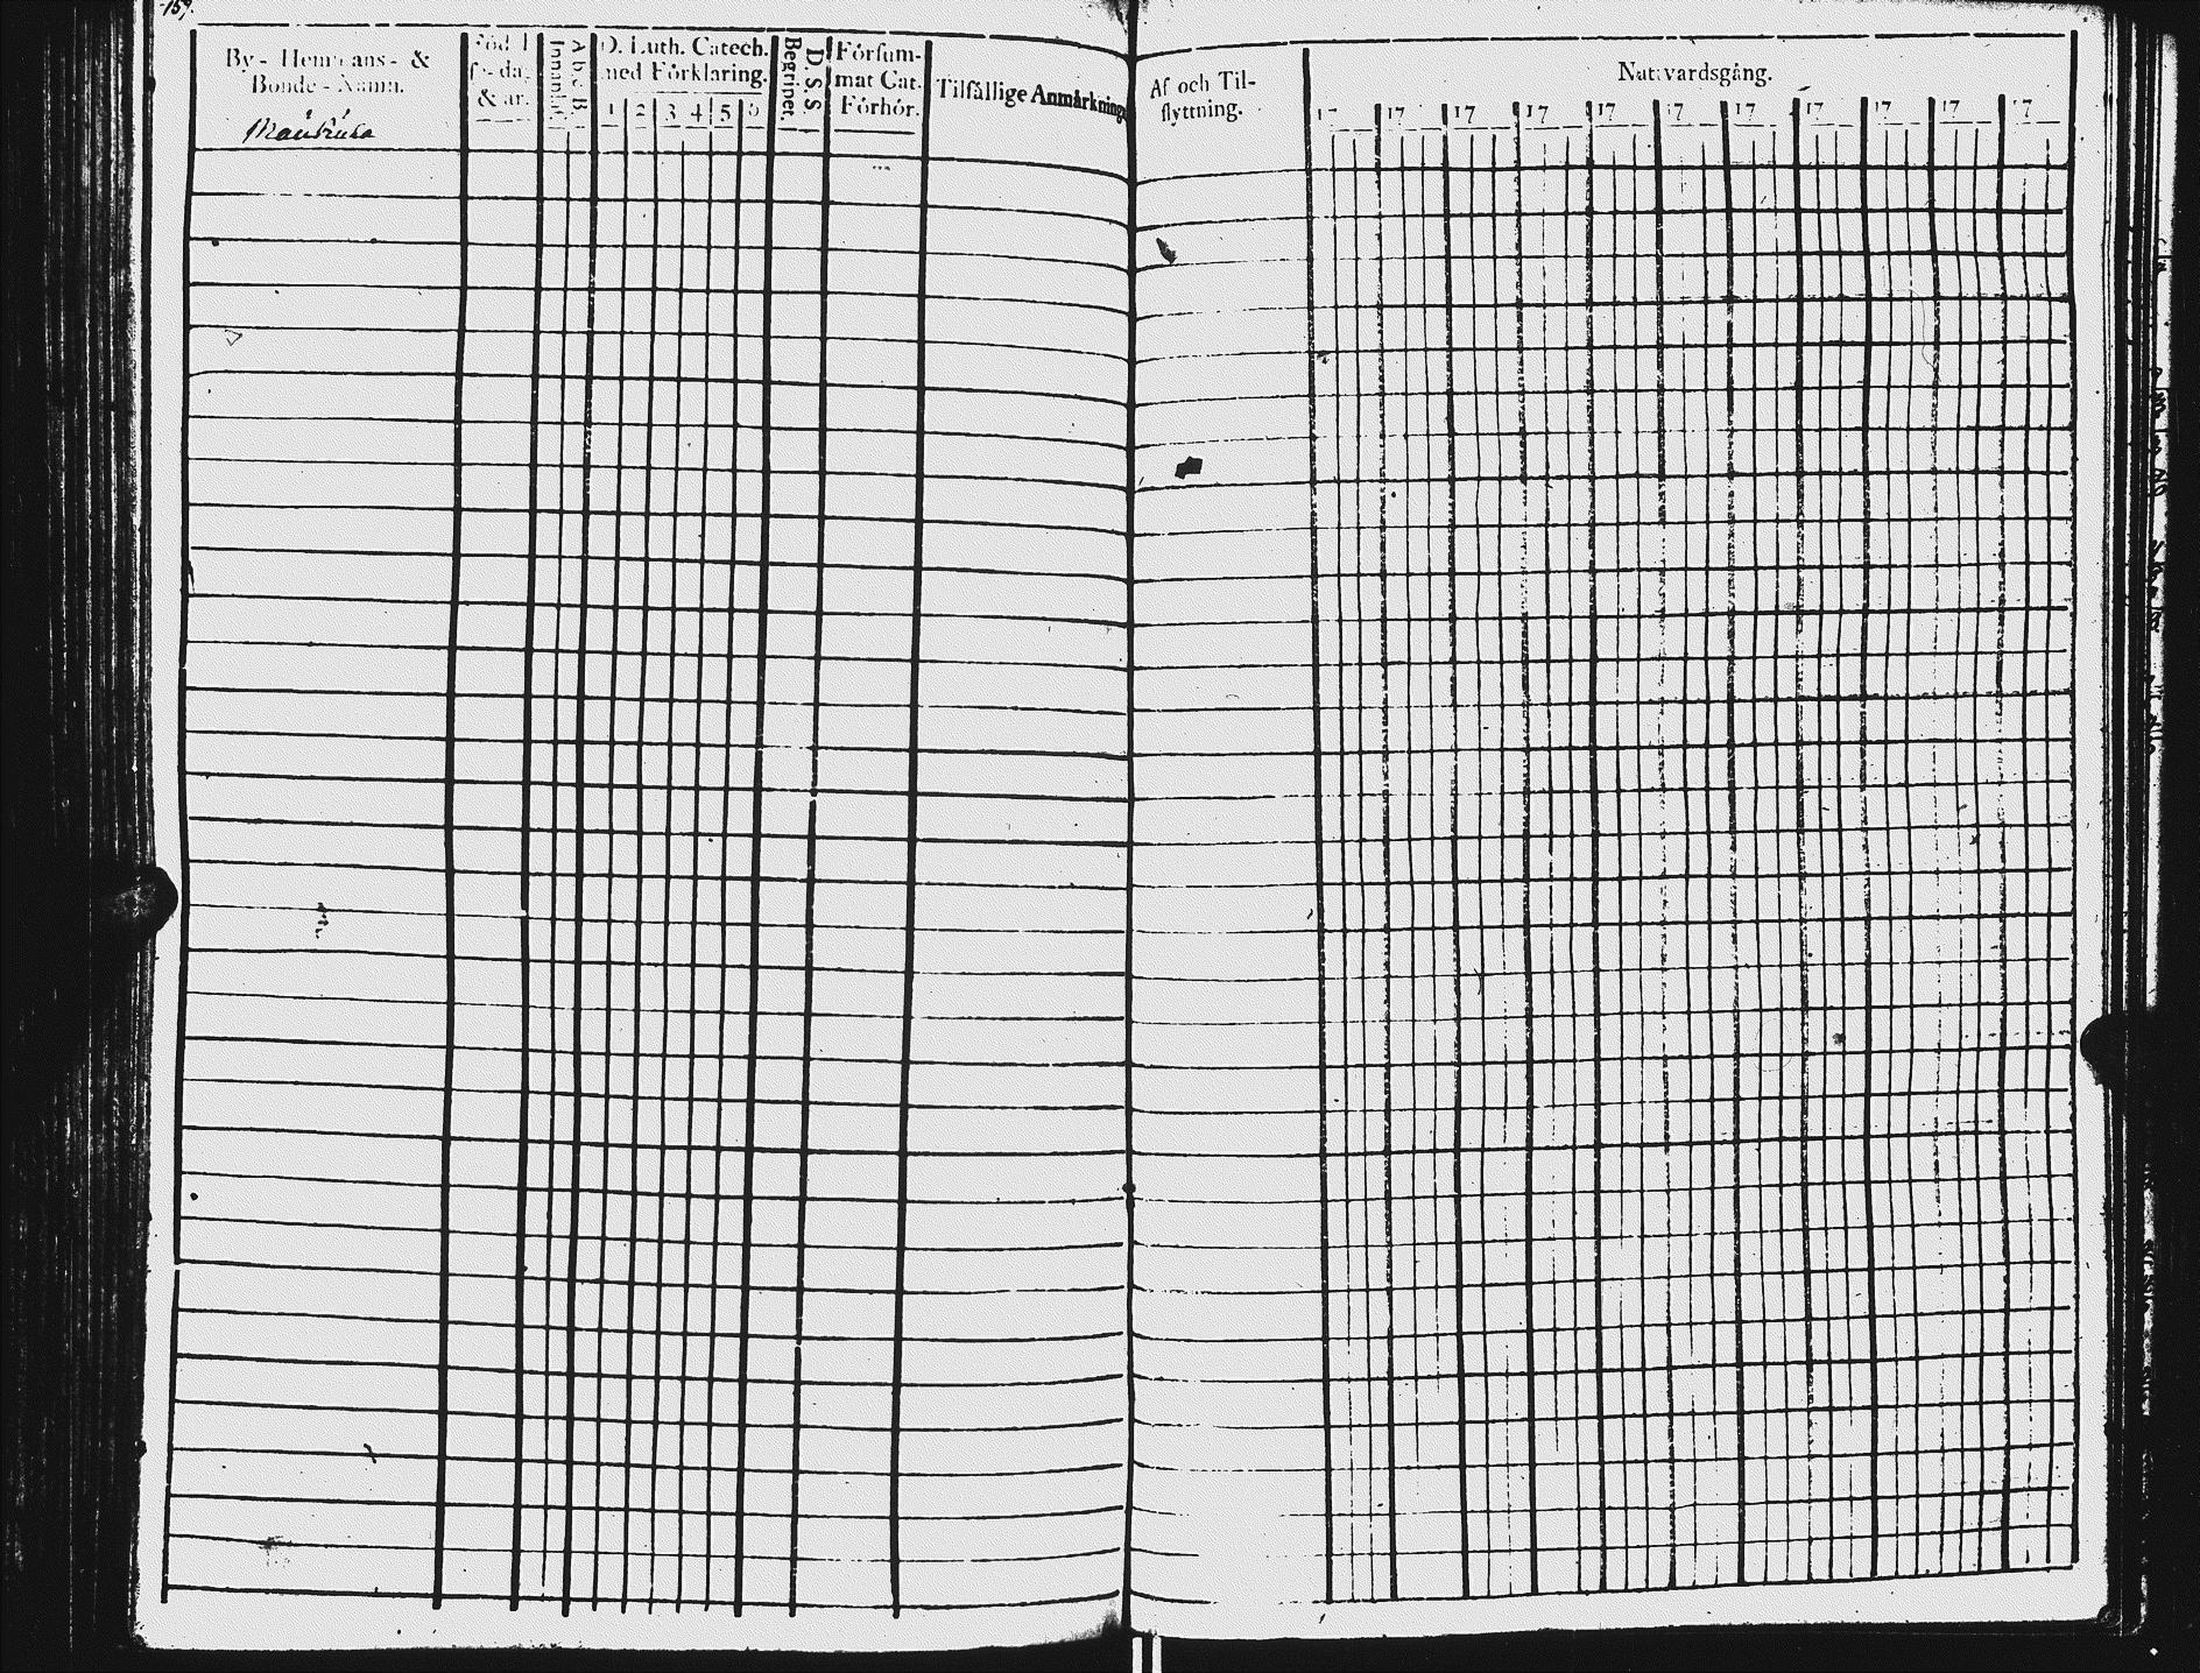 159.
By - Hemmans- &
Bonde - Namn.
Födel
se-da-
& ar.
Innanläs.
A b c B.
D. Luth. Catech.
med Förklaring.
1 2 3 4 5 6
D. S. S.
Begripet.
Försum-
mat Cat.
Förhör.
Tilfällige Anmärkning
Af och Til-
flyttning.
Nattvardsgång.
17 17 17 17 17 17 17 17 17 17 17